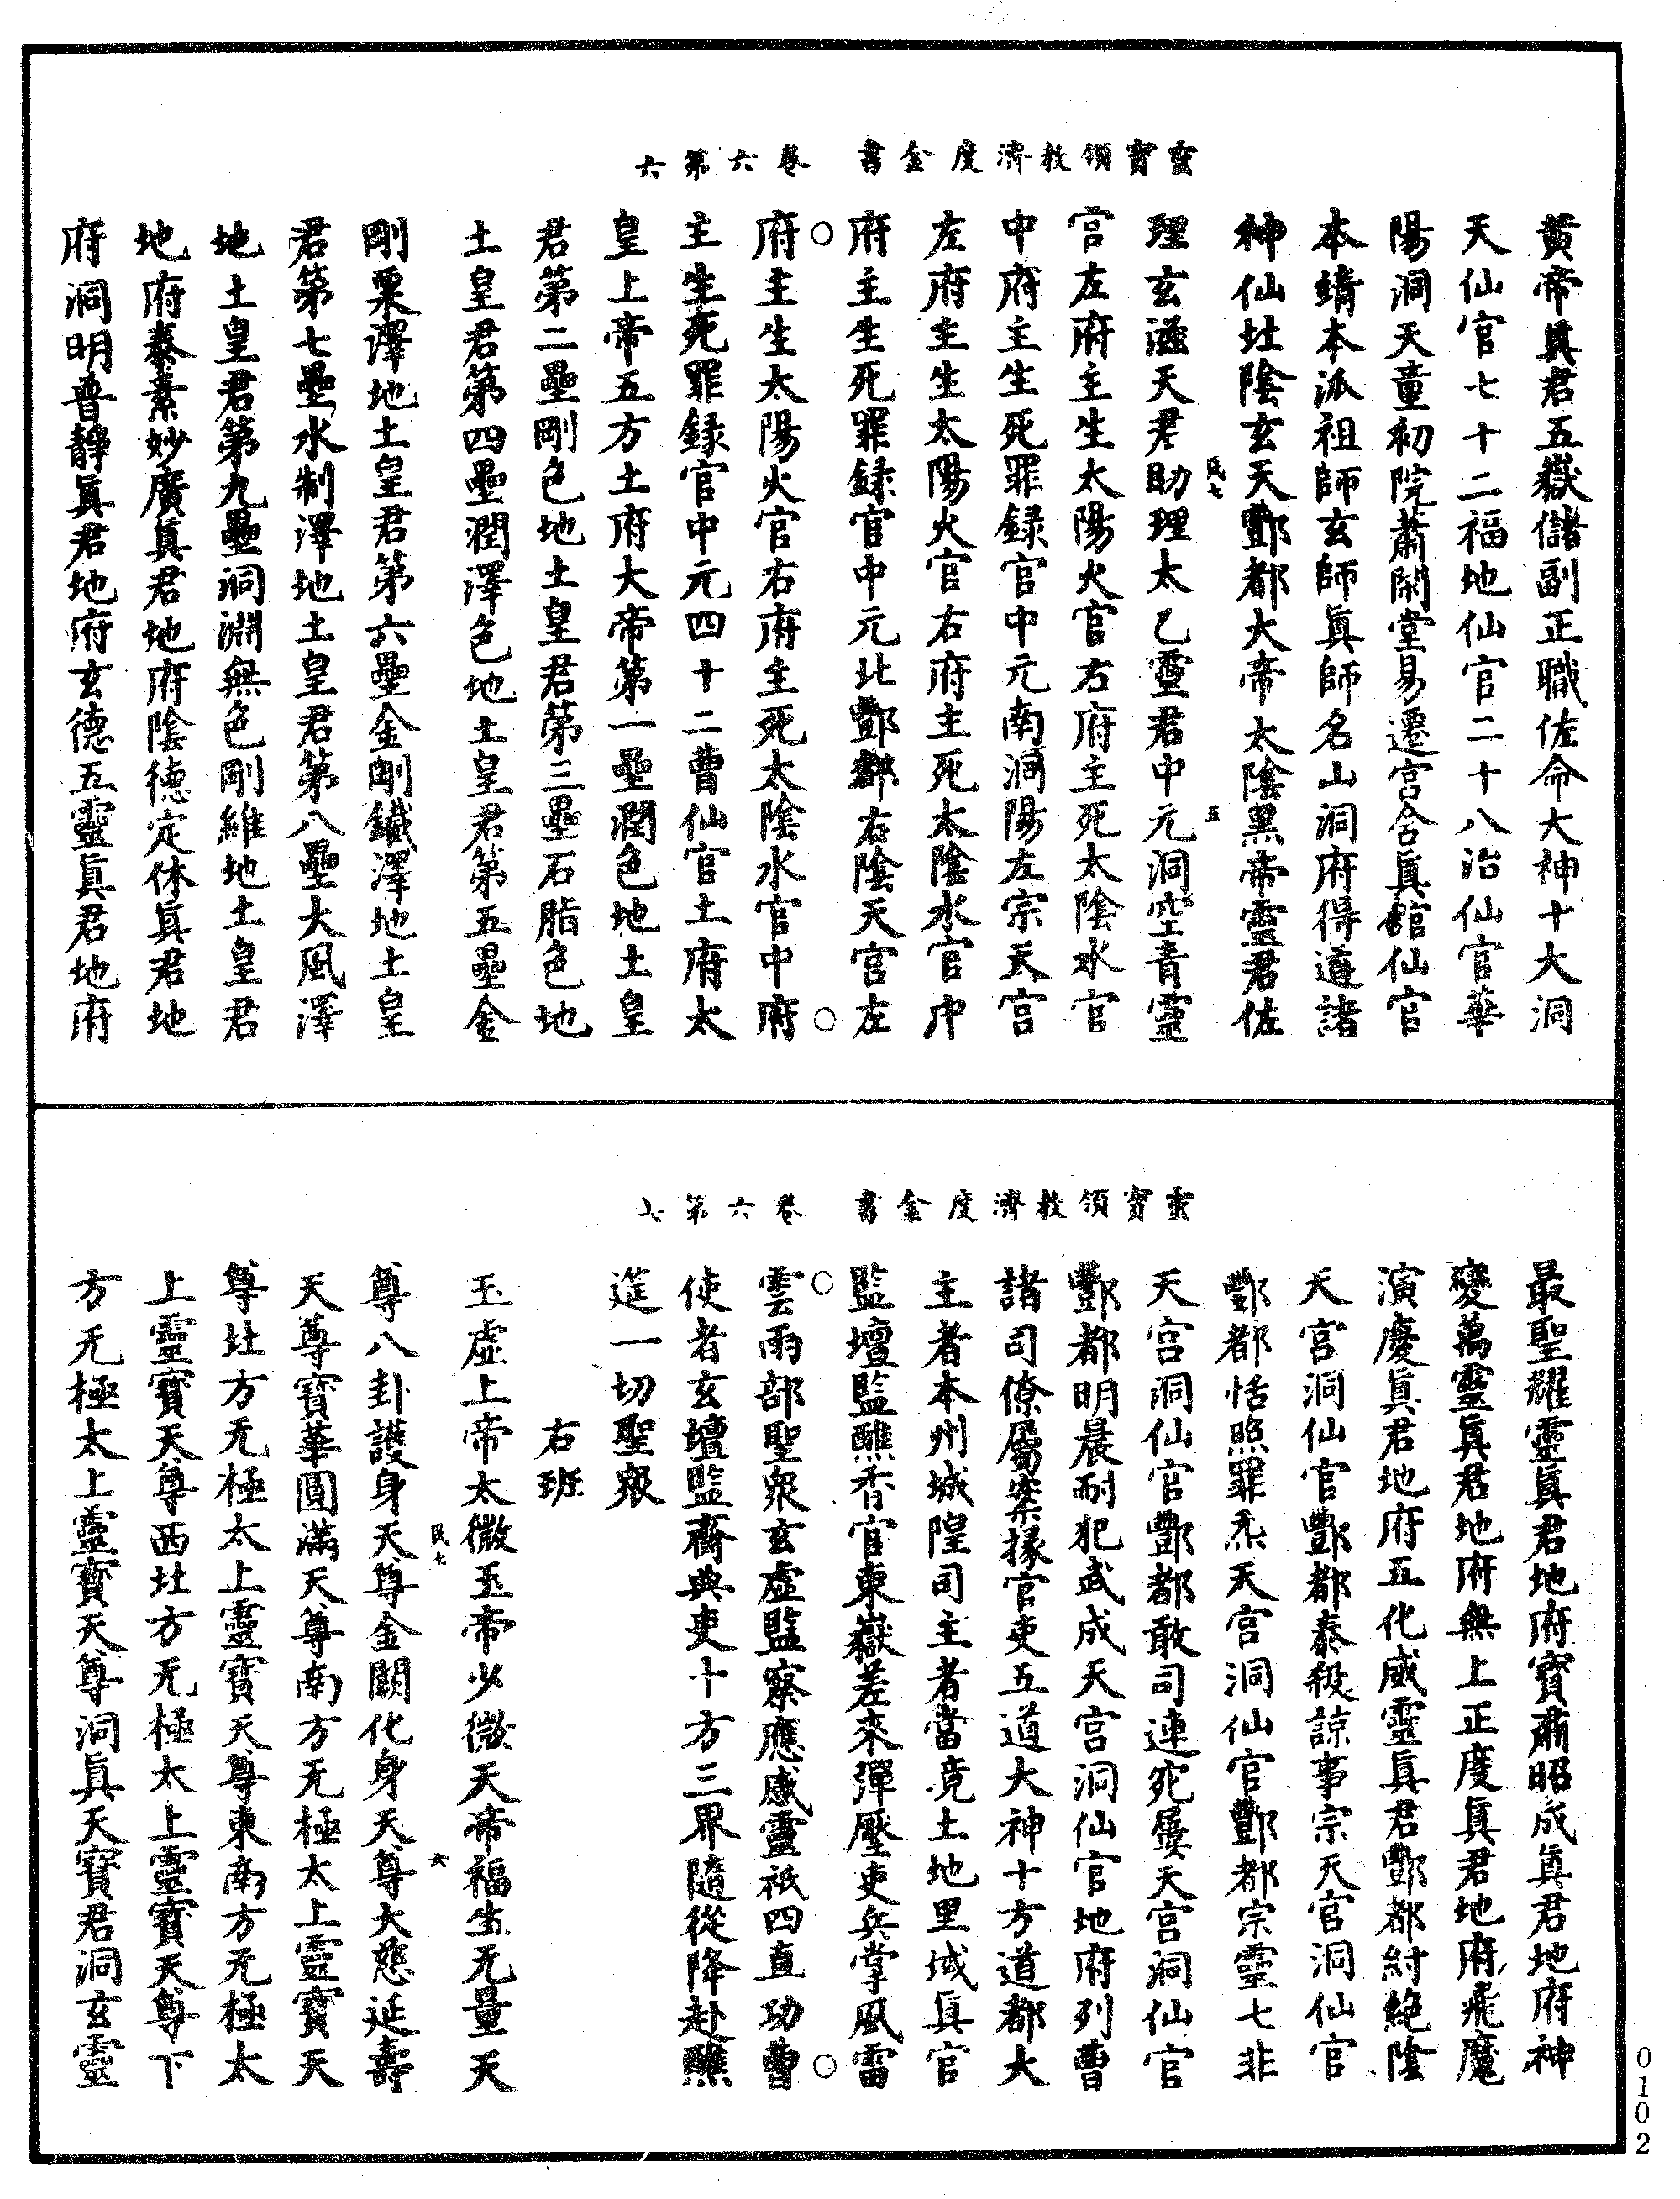 靈寶領教濟度金書 卷六第六
黃帝眞君五嶽儲副正職佐命大神十大洞
天仙官七十二福地仙官二十八治仙官華
陽洞天童初院蕭閑堂易遷宮含眞館仙官
本靖本派祖師玄師眞師名山洞府得道諸
神仙北陰玄天酆都大帝太陰黑帝靈君佐
民七 五
理玄滋天君助理太乙靈君中元洞空青靈
宮左府主生太陽火官右府主死太陰水官
中府主生死罪録官中元南洞陽左宗天宮
左府主生太陽火官右府主死太陰水官中
府主生死罪録官中元北酆都右陰天宮左
府主生太陽火官右府主死太陰水官中府
主生死罪録官中元四十二曹仙官土府太
皇上帝五方土府大帝第一壘潤色地土皇
君第二壘剛色地土皇君第三壘石脂色地
土皇君第四壘潤澤色地土皇君第五壘金
剛粟澤地土皇君第六壘金剛鐵澤地土皇
君第七壘水制澤地土皇君第八壘大風澤
地土皇君第九壘洞淵無色剛維地土皇君
地府泰素妙廣眞君地府陰德定休眞君地
府洞明普靜眞君地府玄德五靈眞君地府
靈寶領教濟度金書 卷六第七
最聖耀靈眞君地府寶肅昭成眞君地府神
變萬靈眞君地府無上正度眞君地府飛魔
演慶眞君地府五化威靈眞君酆都紂絶陰
天宮洞仙官酆都泰殺諒事宗天宮洞仙官
酆都恬照罪炁天宮洞仙官酆都宗靈七非
天宮洞仙官酆都敢司連宛屢天宮洞仙官
酆都明晨耐犯武成天宮洞仙官地府列曹
諸司僚屬案掾官吏五道大神十方道都大
主者本州城隍司主者當竟土地里域眞官
監壇監醮香官東嶽差來彈壓吏兵掌風雷
雲雨部聖衆玄虛監察應感靈祇四直功曹
使者玄壇監齋典吏十方三界隨從降赴醮
筵一切聖衆
右班
玉虛上帝太微玉帝少微天帝福生无量天
民七 六
尊八卦護身天尊金闕化身天尊大慈延壽
天尊寶華圓滿天尊南方无極太上靈寶天
尊北方无極太上靈寶天尊東南方无極太
上靈寶天尊西北方无極太上靈寶天尊下
方无極太上靈寶天尊洞眞天寶君洞玄靈
0102